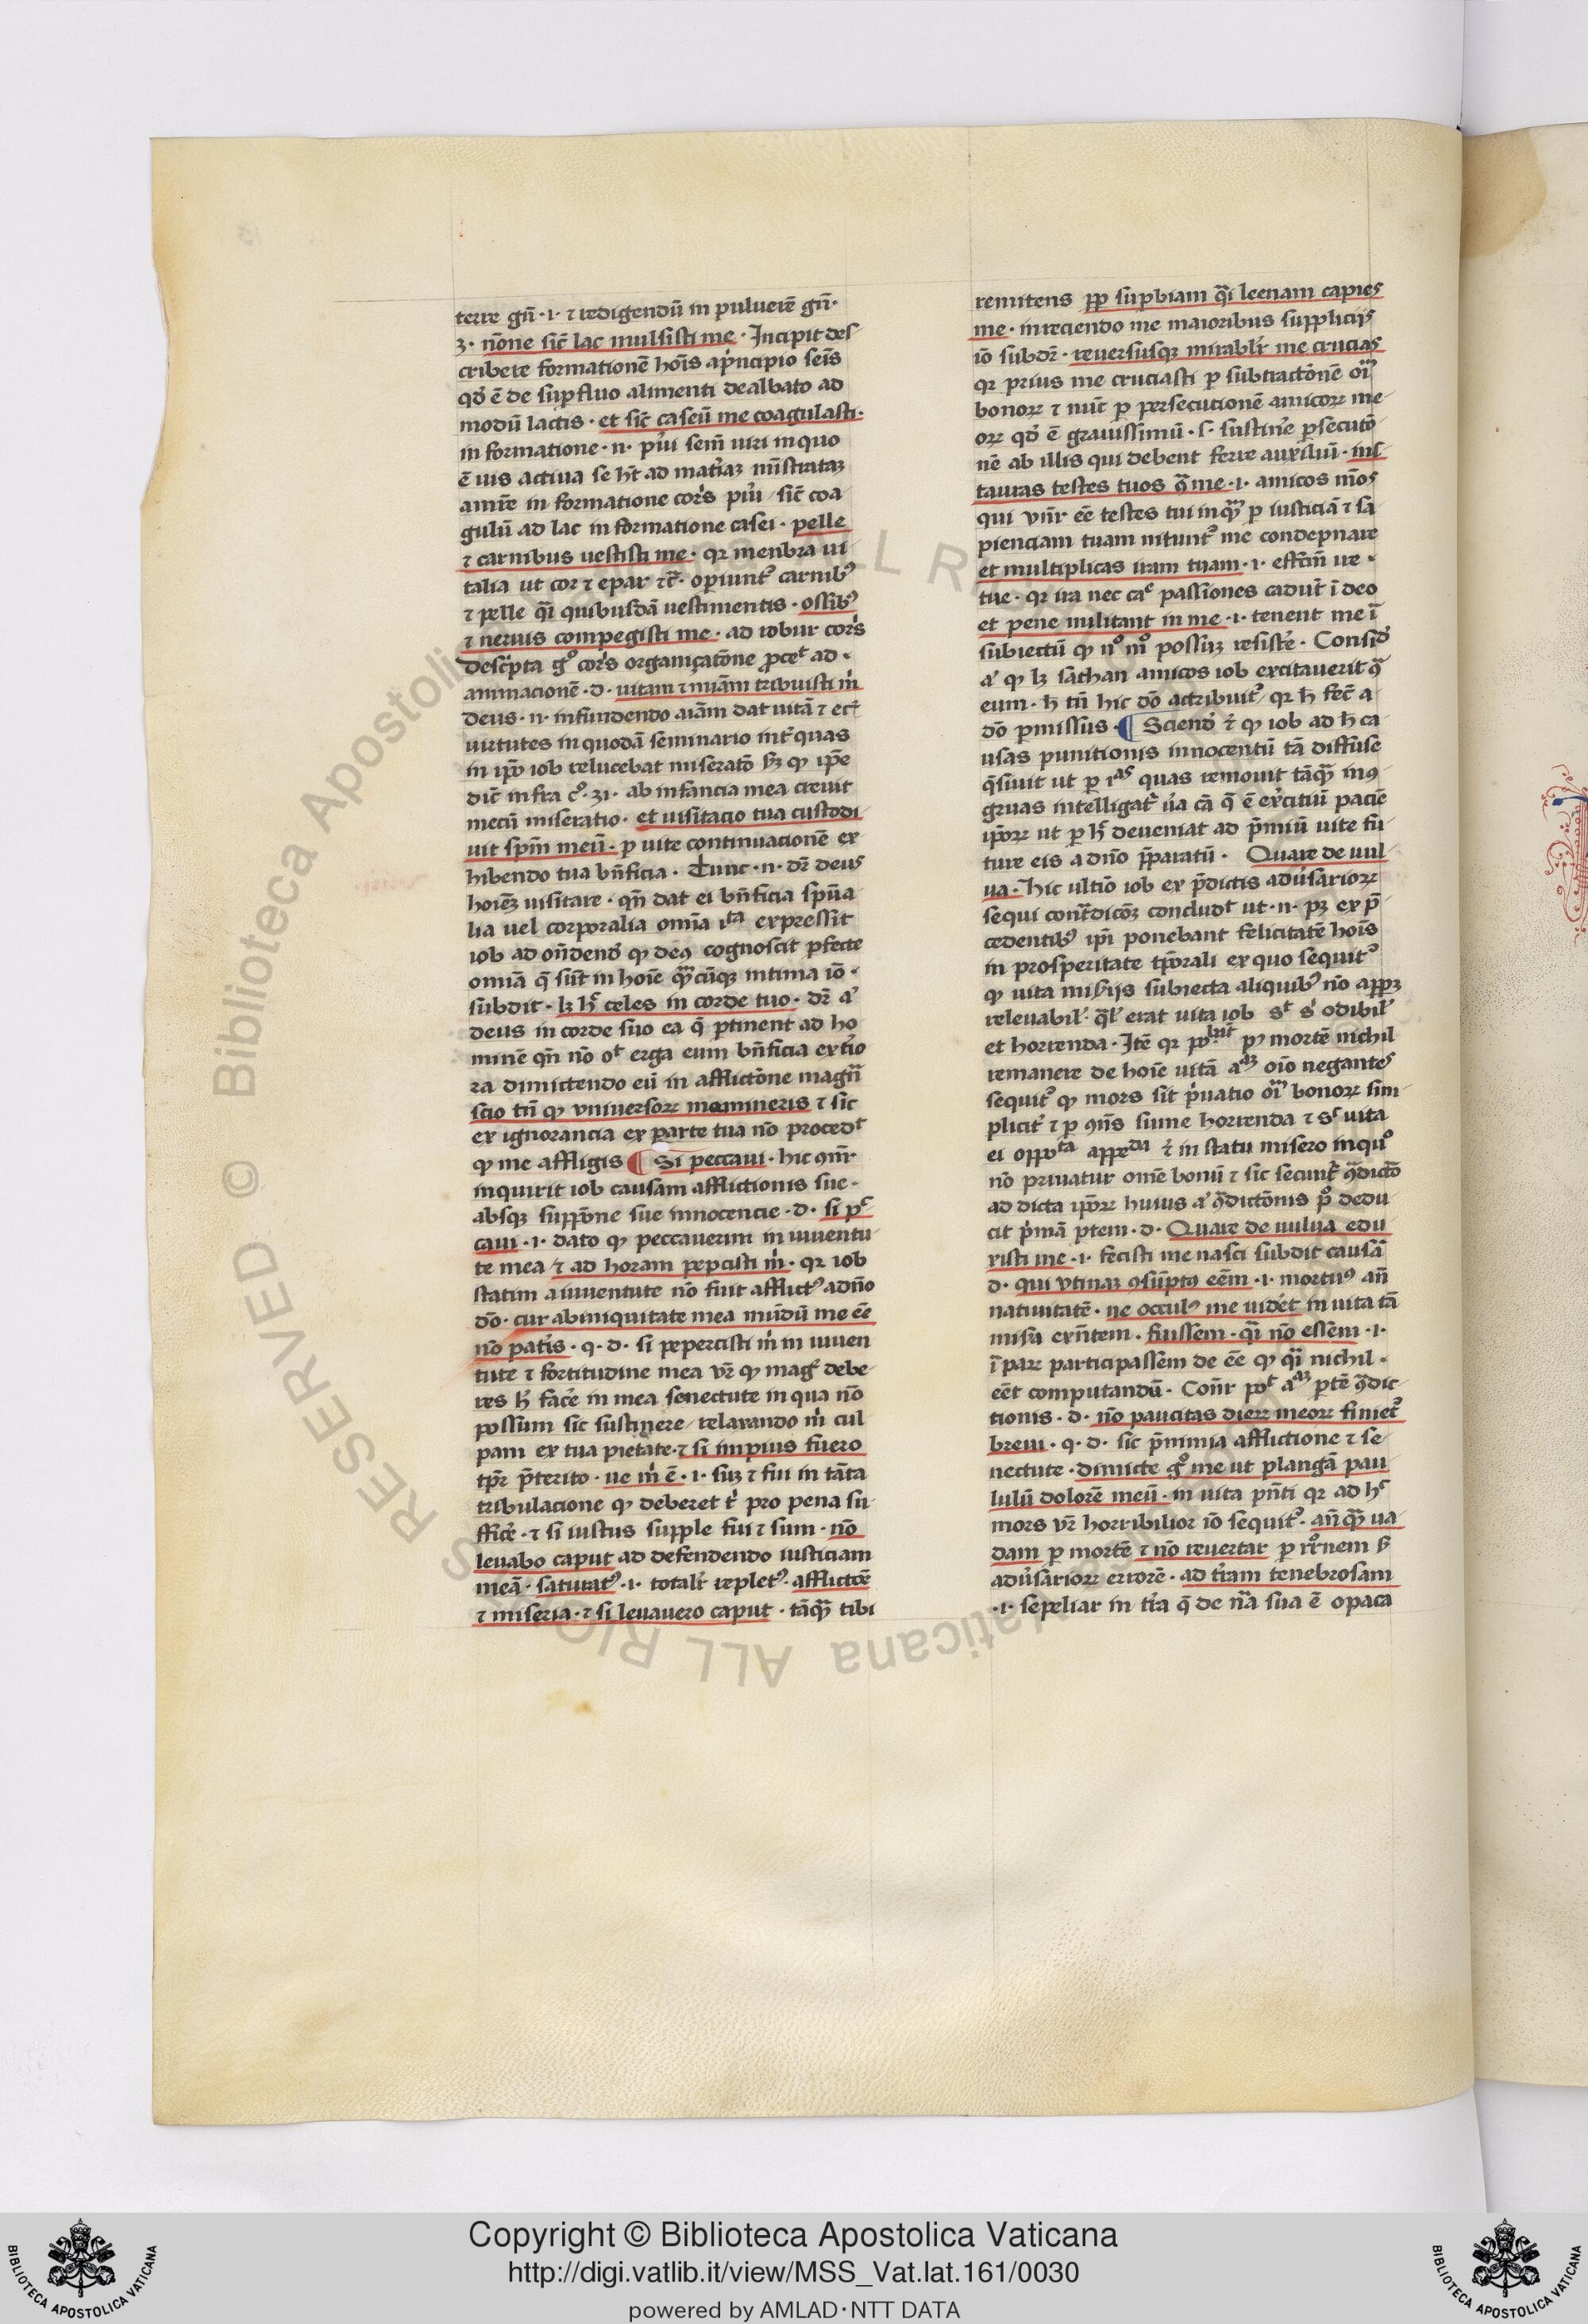 terre gn̄ · i · ⁊ redigendū in puluerē gn̄ ·
ꝫ · nōne sic̄ lac mulsisti me · Incipit des
cribere formationē hoīs a pͥncipio seīs
qd̓ ē de suꝑfluo alimenti dealbato ad
modū lactis · et sic̄ caseū me coagulasti ·
in formatione · n · pu̓i sem̄ uiri in quo
ē uis actiua se ht̄ ad mat̓iaꝫ mīstrataꝫ
a mr̄e in formatione cor̓s pu̓i sic̄ coa
gulū ad lac in formatione casei · pelle
⁊ carnibus uestisti me · qꝛ menbra ui
talia ut cor ⁊ epar ⁊c̄ · opiunt᷑ carnibꝰ
⁊ pelle qͣi quibusdā uestimentis · ossibꝰ
⁊ neruis compegisti me · ad robur cor̓s
desc̓pta gͦ cor̓s organiçatōne ꝓcedᵗ ad ·
animacionē · d · uitam ⁊ mīam tribuisti m̓
deus · n · infundendo aīam dat uitā ⁊ et̓
uirtutes in quodā seminario int̓ quas
in ip̄o iob relucebat miseratō ẜm ꝙ ip̄e
dic̄ infra cͦ · 31 · ab infancia mea creuit
mecū miseratio · et uisitacio tua custodi
uit sp̄m meū · ꝑ uite continuacionē ex
hibendo tua bn̄ficia · Tunc · n · dr̄ deus
hoīeꝫ uisitare · qn̄ dat ei bn̄ficia spūa
lia uel corporalia omīa ıᵗᵃ expressit
iob ad on̄dend̓ ꝙ deꝰ cognoscit ꝑfecte
omīa q̄ sūt in hoīe qͣꝫcūqꝫ intima iō ·
subdit · lꝫ h̓ celes in corde tuo · dr̄ aͥ
deus in corde suo ea q̄ ꝑtinent ad ho
minē qn̄ nō oᵗ erga eum bn̄ficia ext̓io
ra dimictendo eū in afflictōne magn̄
scio tn̄ ꝙ vniuersoꝝ memineris ⁊ sic
ex ignorancia ex parte tua nō procedᵗ
ꝙ me affligis ¶ Si peccaui · hic ꝯn̄r
inquirit iob causam afflictionis sue ·
absqꝫ suppōne sue innocencie · d · si pᶜ
caui · i · dato ꝙ peccauerim in iuuentu
te mea ⁊ ad horam peꝑcisti m̓ · qꝛ iob
statim a iuuentute nō fuit afflictꝰ a dn̄o
dō · cur ab iniquitate mea mūdū me eē
nō pat̓is · q · d · si pepercisti m̓ in iuuen
tute ⁊ fortitudine mea vr̄ ꝙ mag̓ debe
res h̓ fac̓e in mea senectute in qua nō
possum sic sustinere relaxando m̓ cul
pam ex tua pietate · ⁊ si impius fuero
tp̄r p̄terito · ue m̓ ē · i · suꝫ ⁊ fui in tāta
tribulacione ꝙ deberet t̓ pro pena su
ffic̓e · ⁊ si iustus supple fui ⁊ sum · nō
leuabo caput ad defendendo iusticiam
meā · saturatꝰ · i · total̓r repletꝰ · afflictōe
⁊ miseria · ⁊ si leuauero caput · tāqͣꝫ tibi
remitens ꝓp suꝑbiam qͣi leenam capies
me · inreciendo me maioribus supplicijs
iō subdr̄ · reuersusqꝫ mirabil̓r me crucias
qꝛ prius me cruciasti ꝑ subtractōnē oīꝫ
bonoꝝ ⁊ nūc ꝑ persecutionē amicoꝝ me
oꝝ qd̓ ē grauissimū · s · sustin̓e ꝑsecutō
nē ab illis qui debent ferre auxiluī · ins
tauras testes tuos qͣ me · i · amicos m̄os
qui vn̄r eē testes tui inqͣꝫ ꝑ iusticiā ⁊ sa
pienciam tuam nitunt᷑ me condepnare
et multiplicas iram tuam · i · effc̄m ue ·
tue · qꝛ ira nec caᶜ passiones cadūt ī deo
et pene militant in me · i · tenent me ī
subiectū ꝙ nͦ mͦ possuꝫ resist̓e · Consid̓
aͥ ꝙ lꝫ sathan amicos iob excitauerit qͣ
eum · h̄ tn̄ hic dō actribuit᷑ qꝛ h̄ fec̄ a
dō ꝑmissus · ¶ Sciend̓ ē ꝙ iob ad h̄ ca
usas punitionis innocentū tā diffuse
q̄siuit ut ꝑ ıᵃˢ quas remouit tāqͣꝫ inꝯ
gruas intelligat᷑ u̓a cā q̄ ē ex̓citiuī paciē
ip̄oꝝ ut ꝑ h̓ deueniat ad p̄miū uite fu
ture eis a dn̄o p̄paratū · Quare de uul
ua · Hic ultīo iob ex p̄dictis adu̓sarioꝝ
sequi cont̓dicōꝫ concludᵗ ut · n · pꝫ ex p̄
cedentibꝰ ip̄i ponebant felicitatē hoīs
in prosperitate tp̄orali ex quo sequit᷑
ꝙ uita mis̓ijs subiecta aliquibꝰ nō appꝫ
releuabil̓ · q̄l̓ erat uita iob sᵗ s̓ odibil̓
et horrenda · Itē qꝛ poᵇᵘⁿᵗ pꝰ mortē nichil
remanere de hoīe uitā aᵃᵐ oīo negantes
sequit᷑ ꝙ mors sit pͥuatio oīꝫ bonoꝝ sim
plicit̓ ⁊ ꝑ ꝯn̄s siūme horrenda ⁊ sᶜ uita
ei oppoᵗᵃ appeᵈᵃ ē in statu misero in quͦ
nō priuatur omē bonū ⁊ sic secunt᷑ qͣdictō
ad dicta ip̄oꝝ huius aͥ qͣdictōnis pͦ dedu
cit pͥmā ꝑtem · d · Quare de uulua edu
xisti me · i · fecisti me nasci subdit causā
d · qui vtinaꝫ ꝯsūptꝰ eēm · i · mortuꝰ an̄
natiuitatē · ne oculꝰ me uid̓et in uita tā
mis̓a exn̄tem · fuissem · qͣi nō essem · i ·
ī paꝝ participassem de eē ꝙ qͣi nichil ·
eēt computandū · Con̄r poᵗ aᵃᵐ ꝑtē qͣdic
tionis · d · nō paucitas dieꝝ meoꝝ finiet᷑
breui · q · d · sic p̄nimia afflictione ⁊ se
nectute · dimicte gͦ me ut plangā pau
lulū dolorē meū · in uita pn̄ti qꝛ ad h̓
mors vr̄ horribilior iō sequit᷑ · an̄qͣꝫ ua
dam ꝑ mortē ⁊ nō reuertar ꝑ rr̄nem ẜ
adu̓sarioꝝ errorē · ad t̓ram tenebrosam
· i · sepeliar in t̓ra q̄ de nā sua ē opaca
Copyright © Biblioteca Apostolica Vaticana
http://digi.vatlib.it/view/MSS_Vat.lat.161/0030
powered by AMLAD·NTT DATA